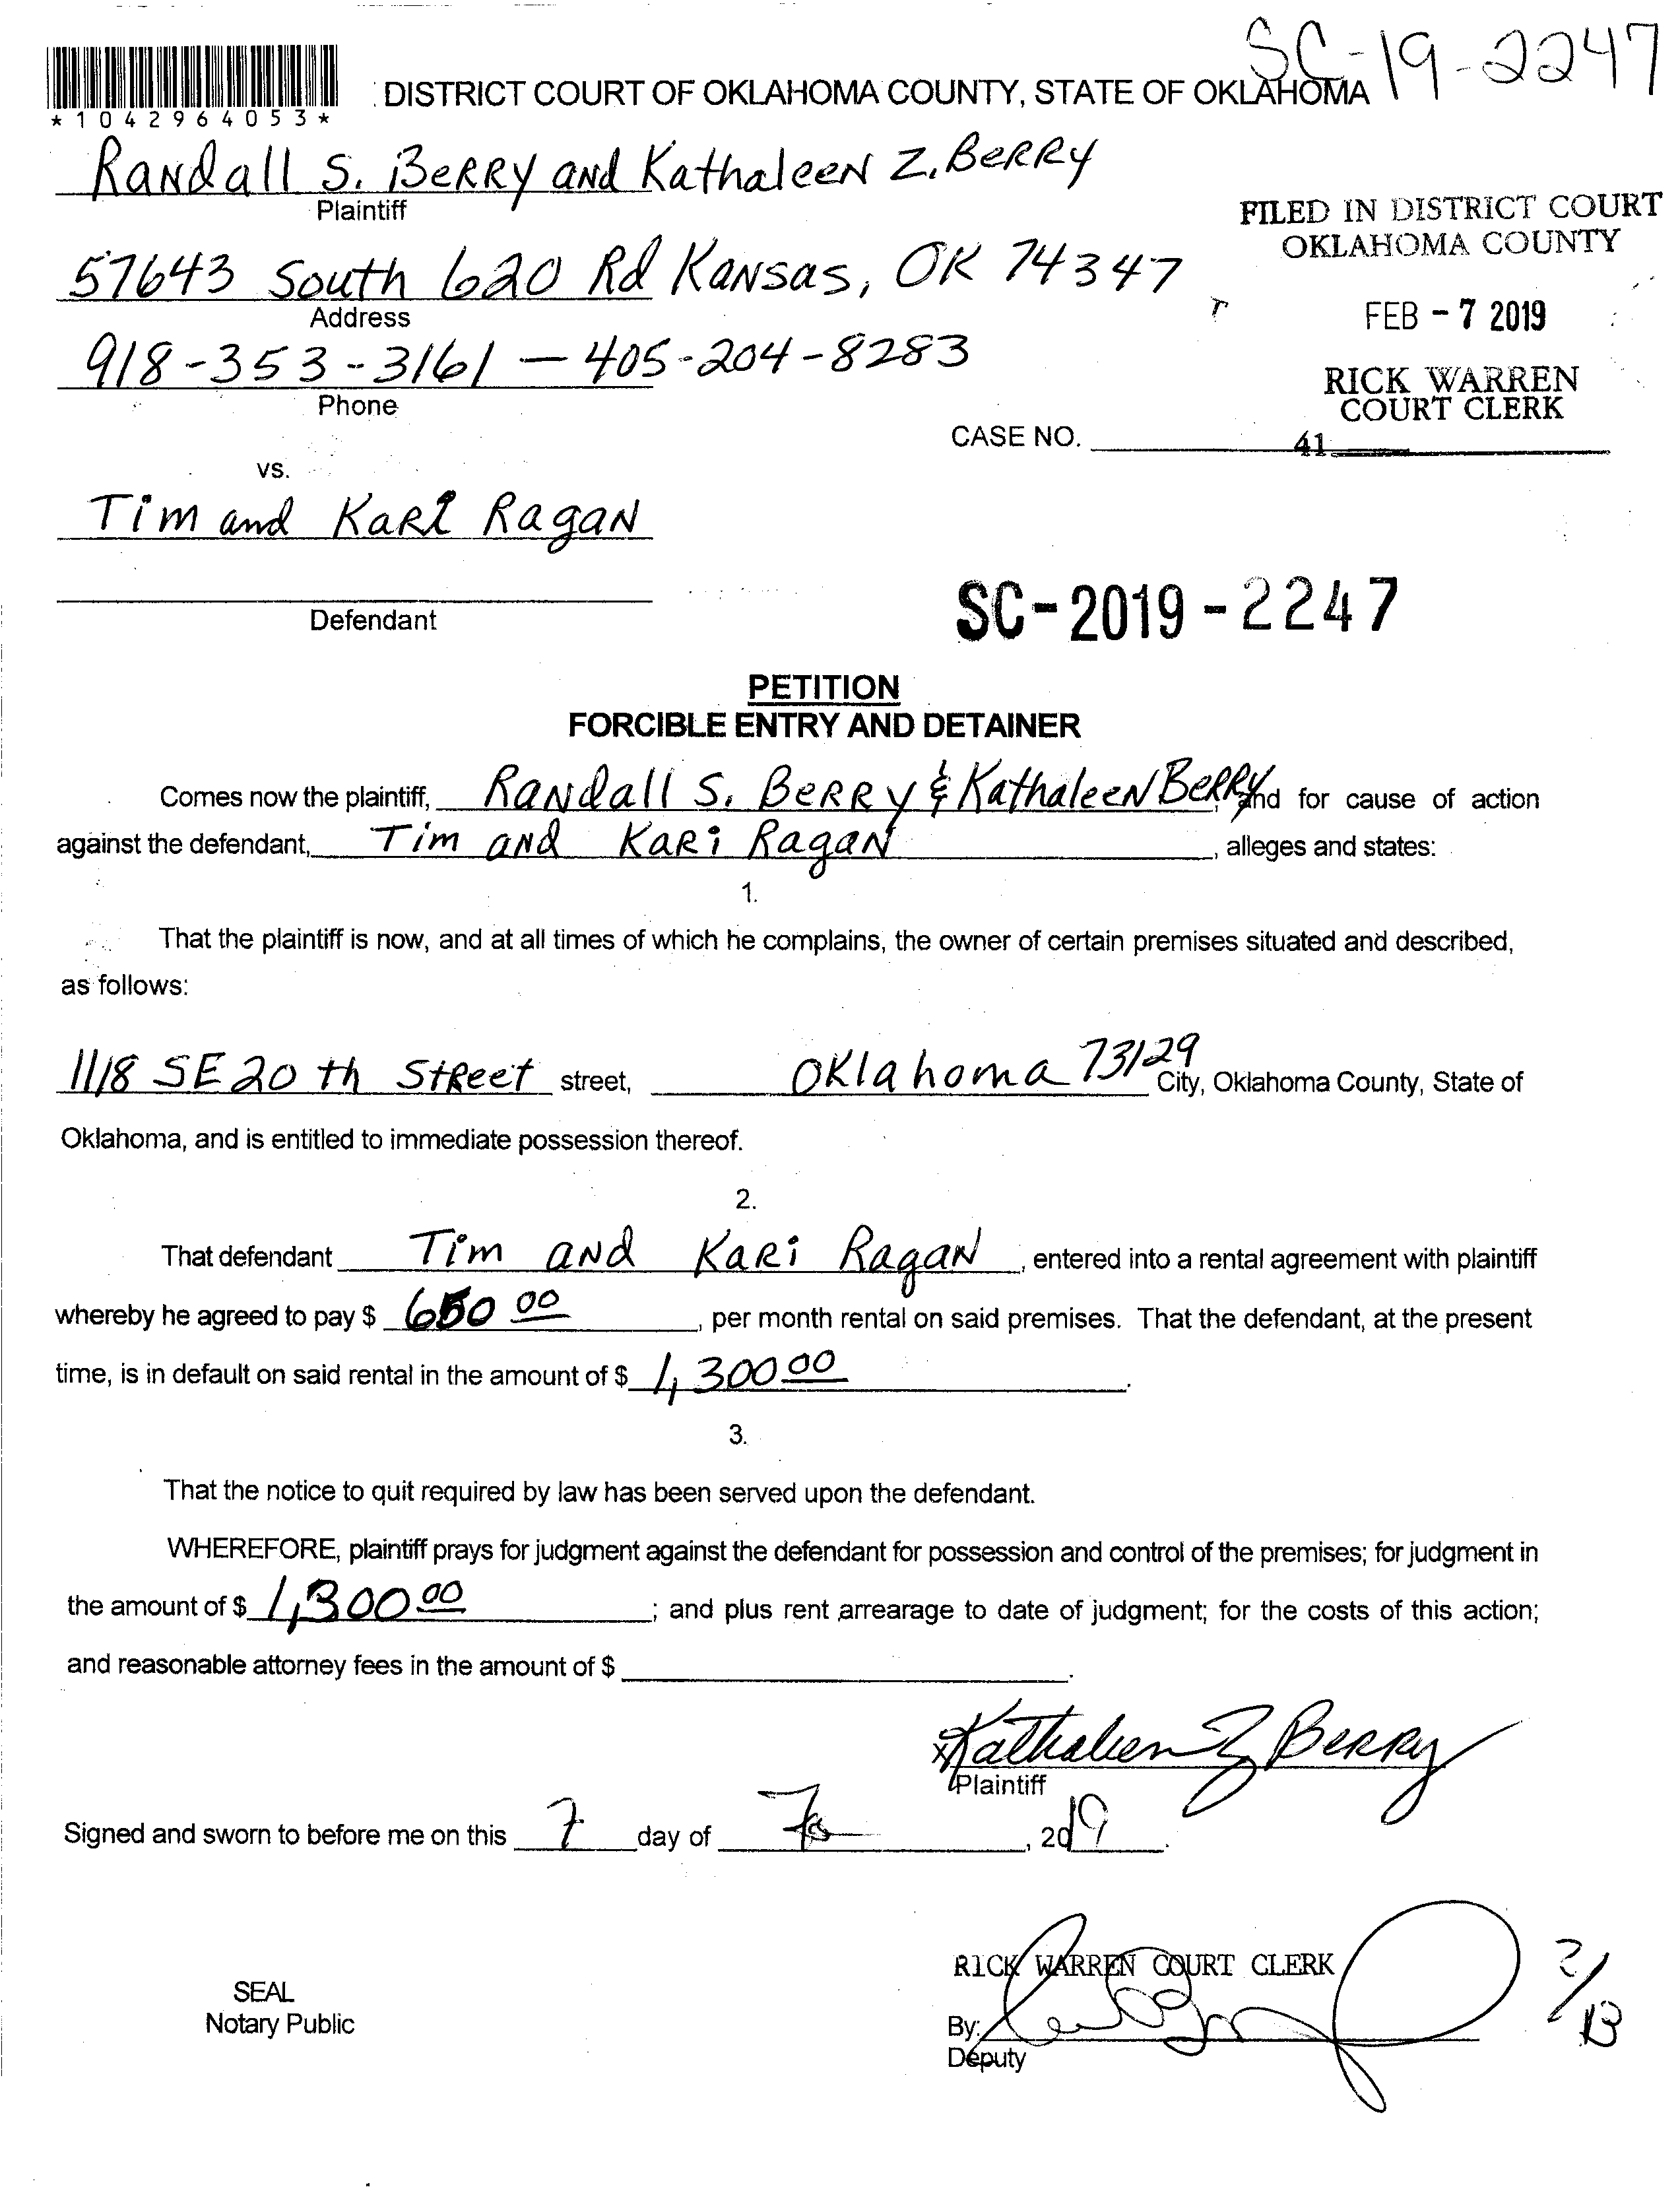 SC-19-2247
*1042964053*
DISTRICT COURT OF OKLAHOMA COUNTY, STATE OF OKLAHOMA
Randall S. Berry and Kathaleen Z. Berry
Plaintiff
FILED IN DISTRICT COURT
OKLAHOMA COUNTY
57643 South 620 Rd Kansas, OK 74347
Address
FEB - 7 2019
918-353-3161 — 405-204-8283
Phone
RICK WARREN
COURT CLERK
CASE NO. 41
vs.
Tim and Kari Ragan
Defendant
SC-2019-2247
PETITION
FORCIBLE ENTRY AND DETAINER
Comes now the plaintiff, Randall S. Berry & Kathaleen Berry, and for cause of action
against the defendant, Tim and Kari Ragan, alleges and states:
1.
That the plaintiff is now, and at all times of which he complains, the owner of certain premises situated and described,
as follows:
1118 SE 20th Street street, Oklahoma 73129 City, Oklahoma County, State of
Oklahoma, and is entitled to immediate possession thereof.
2.
That defendant Tim and Kari Ragan, entered into a rental agreement with plaintiff
whereby he agreed to pay $ 650 00, per month rental on said premises. That the defendant, at the present
time, is in default on said rental in the amount of $ 1,300 00.
3.
That the notice to quit required by law has been served upon the defendant.
WHEREFORE, plaintiff prays for judgment against the defendant for possession and control of the premises; for judgment in
the amount of $ 1,300 00; and plus rent arrearage to date of judgment; for the costs of this action;
and reasonable attorney fees in the amount of $ .
x Kathaleen Z Berry
Plaintiff
Signed and sworn to before me on this 7 day of Feb, 2019.
RICK WARREN COURT CLERK
SEAL
Notary Public
By:
Deputy
2/13